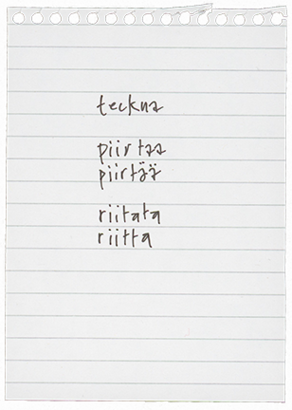 teckna
piirtaa
piirtää
riitata
riitta